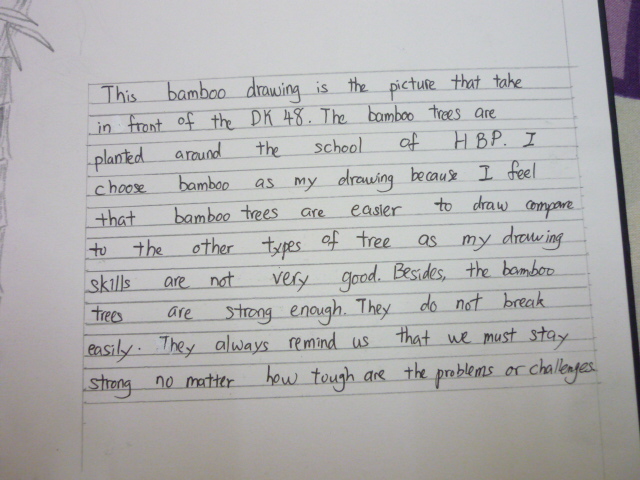 This bamboo drawing is the picture that take
in front of the DK 48. The bamboo trees are
planted around the school of HBP. I
choose bamboo as my drawing because I feel
that bamboo trees are easier to draw compare
to the other types of tree as my drawing
skills are not very good. Besides, the bamboo
trees are strong enough. They do not break
easily. They always remind us that we must stay
strong no matter how tough are the problems or challenges